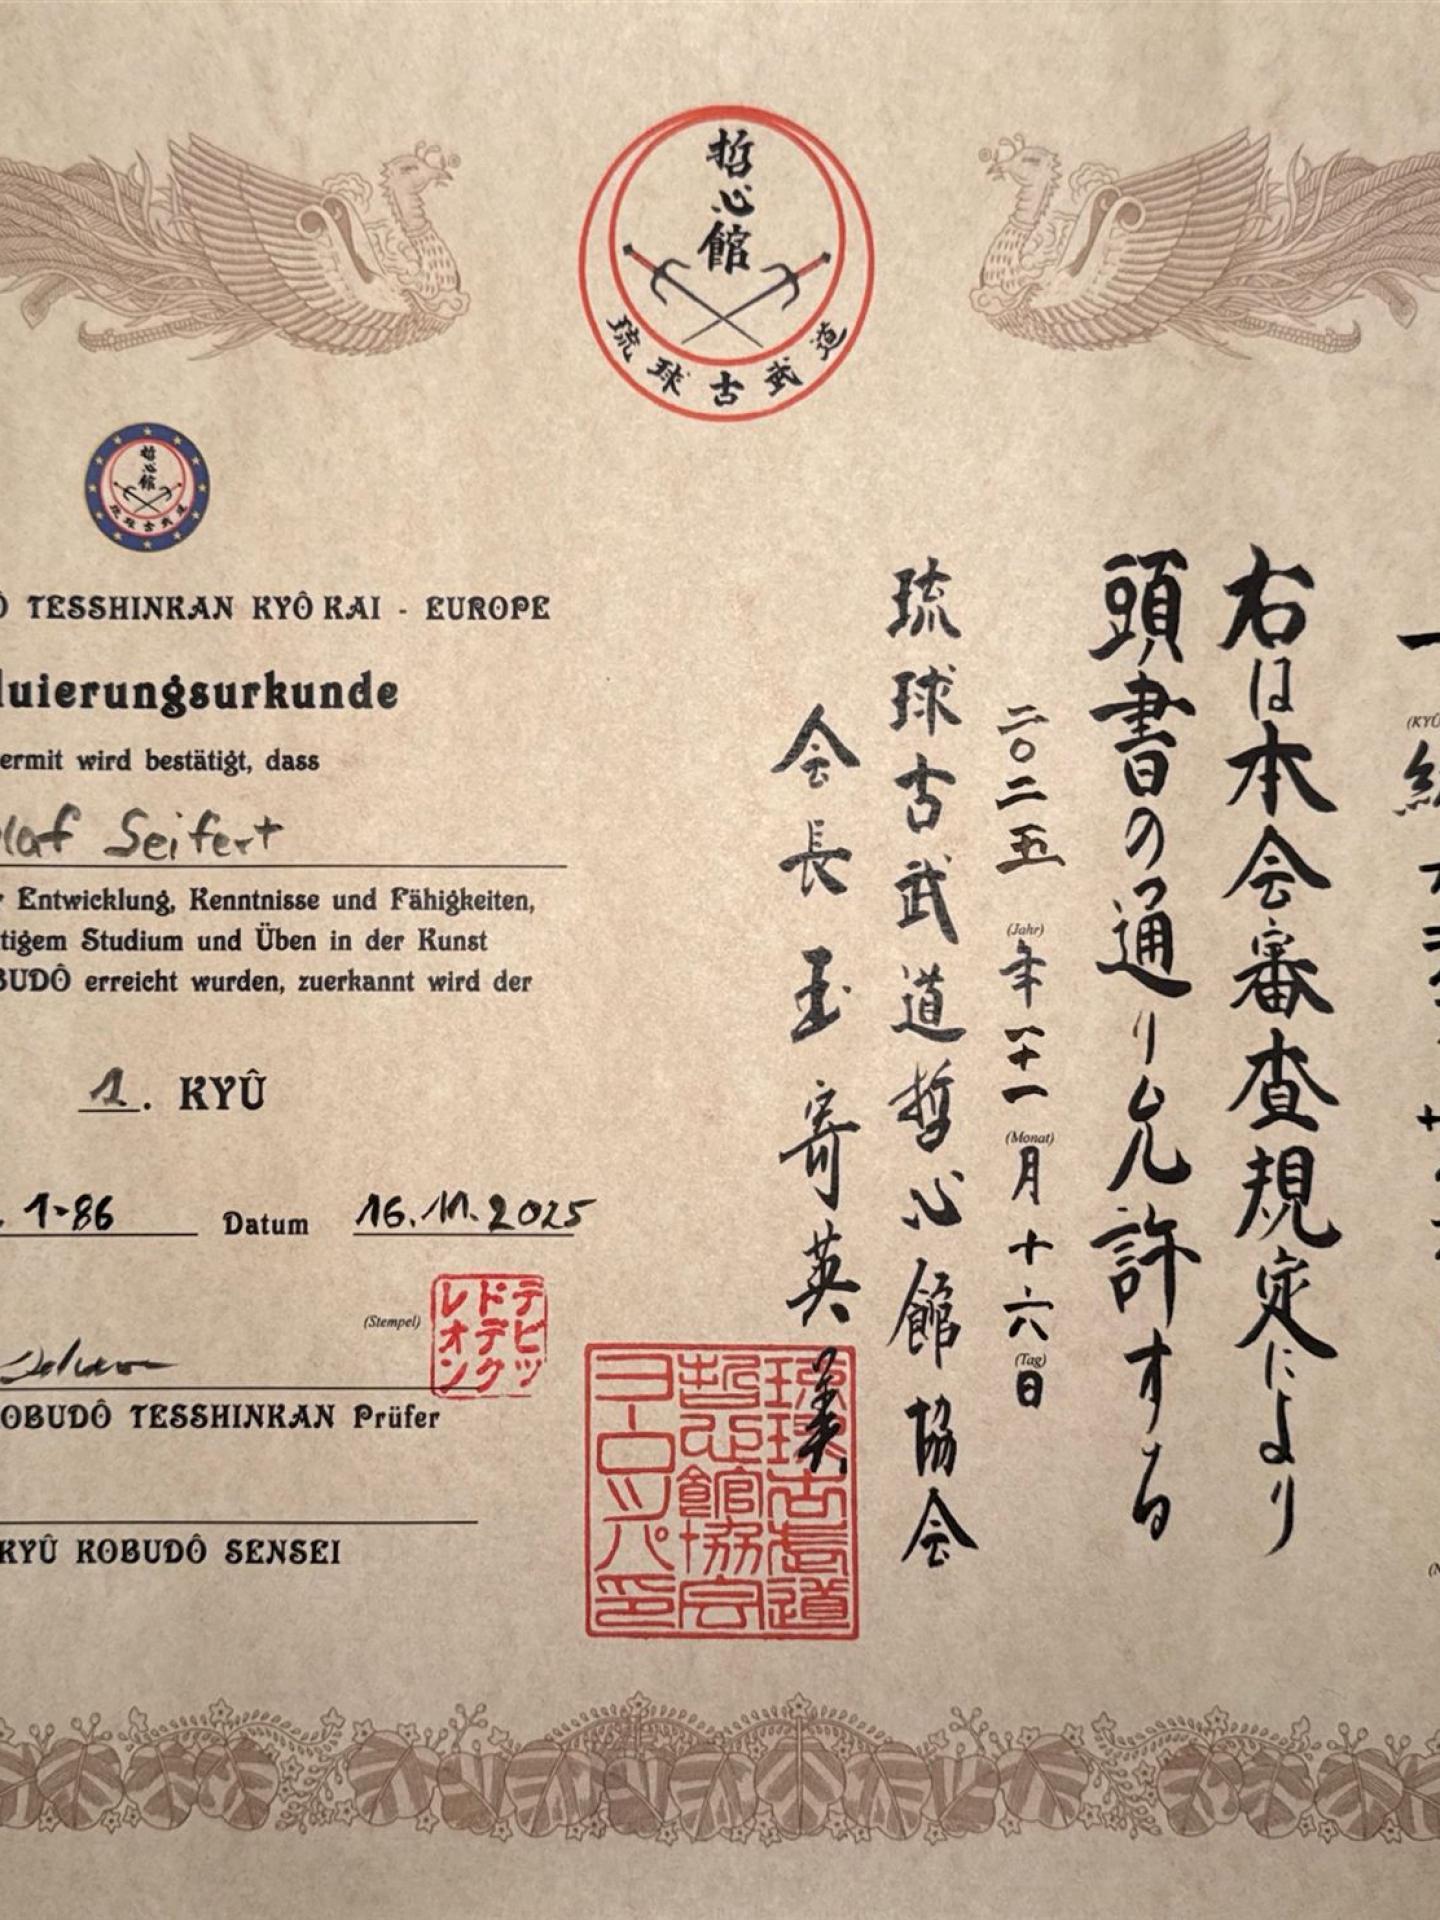 哲心館
琉球古武道
哲心館
琉球古武道
TESSHINKAN KYÔ KAI - EUROPE
luierungsurkunde
ermit wird bestätigt, dass
laf Seifert
Entwicklung, Kenntnisse und Fähigkeiten,
tigem Studium und Üben in der Kunst
BUDÔ erreicht wurden, zuerkannt wird der
1. KYÛ
1-86 Datum 16.11.2025
(Stempel)
テビツ
ドデク
レオン
OBUDÔ TESSHINKAN Prüfer
KYÛ KOBUDÔ SENSEI
(KYÛ
右は本会審査規定により
頭書の通り允許する
二〇二五(Jahr)年十一(Monat)月十六(Tag)日
琉球古武道哲心館協会
会長 玉寄英美
琉球古武道
哲心館協会
ヨーロッパ印